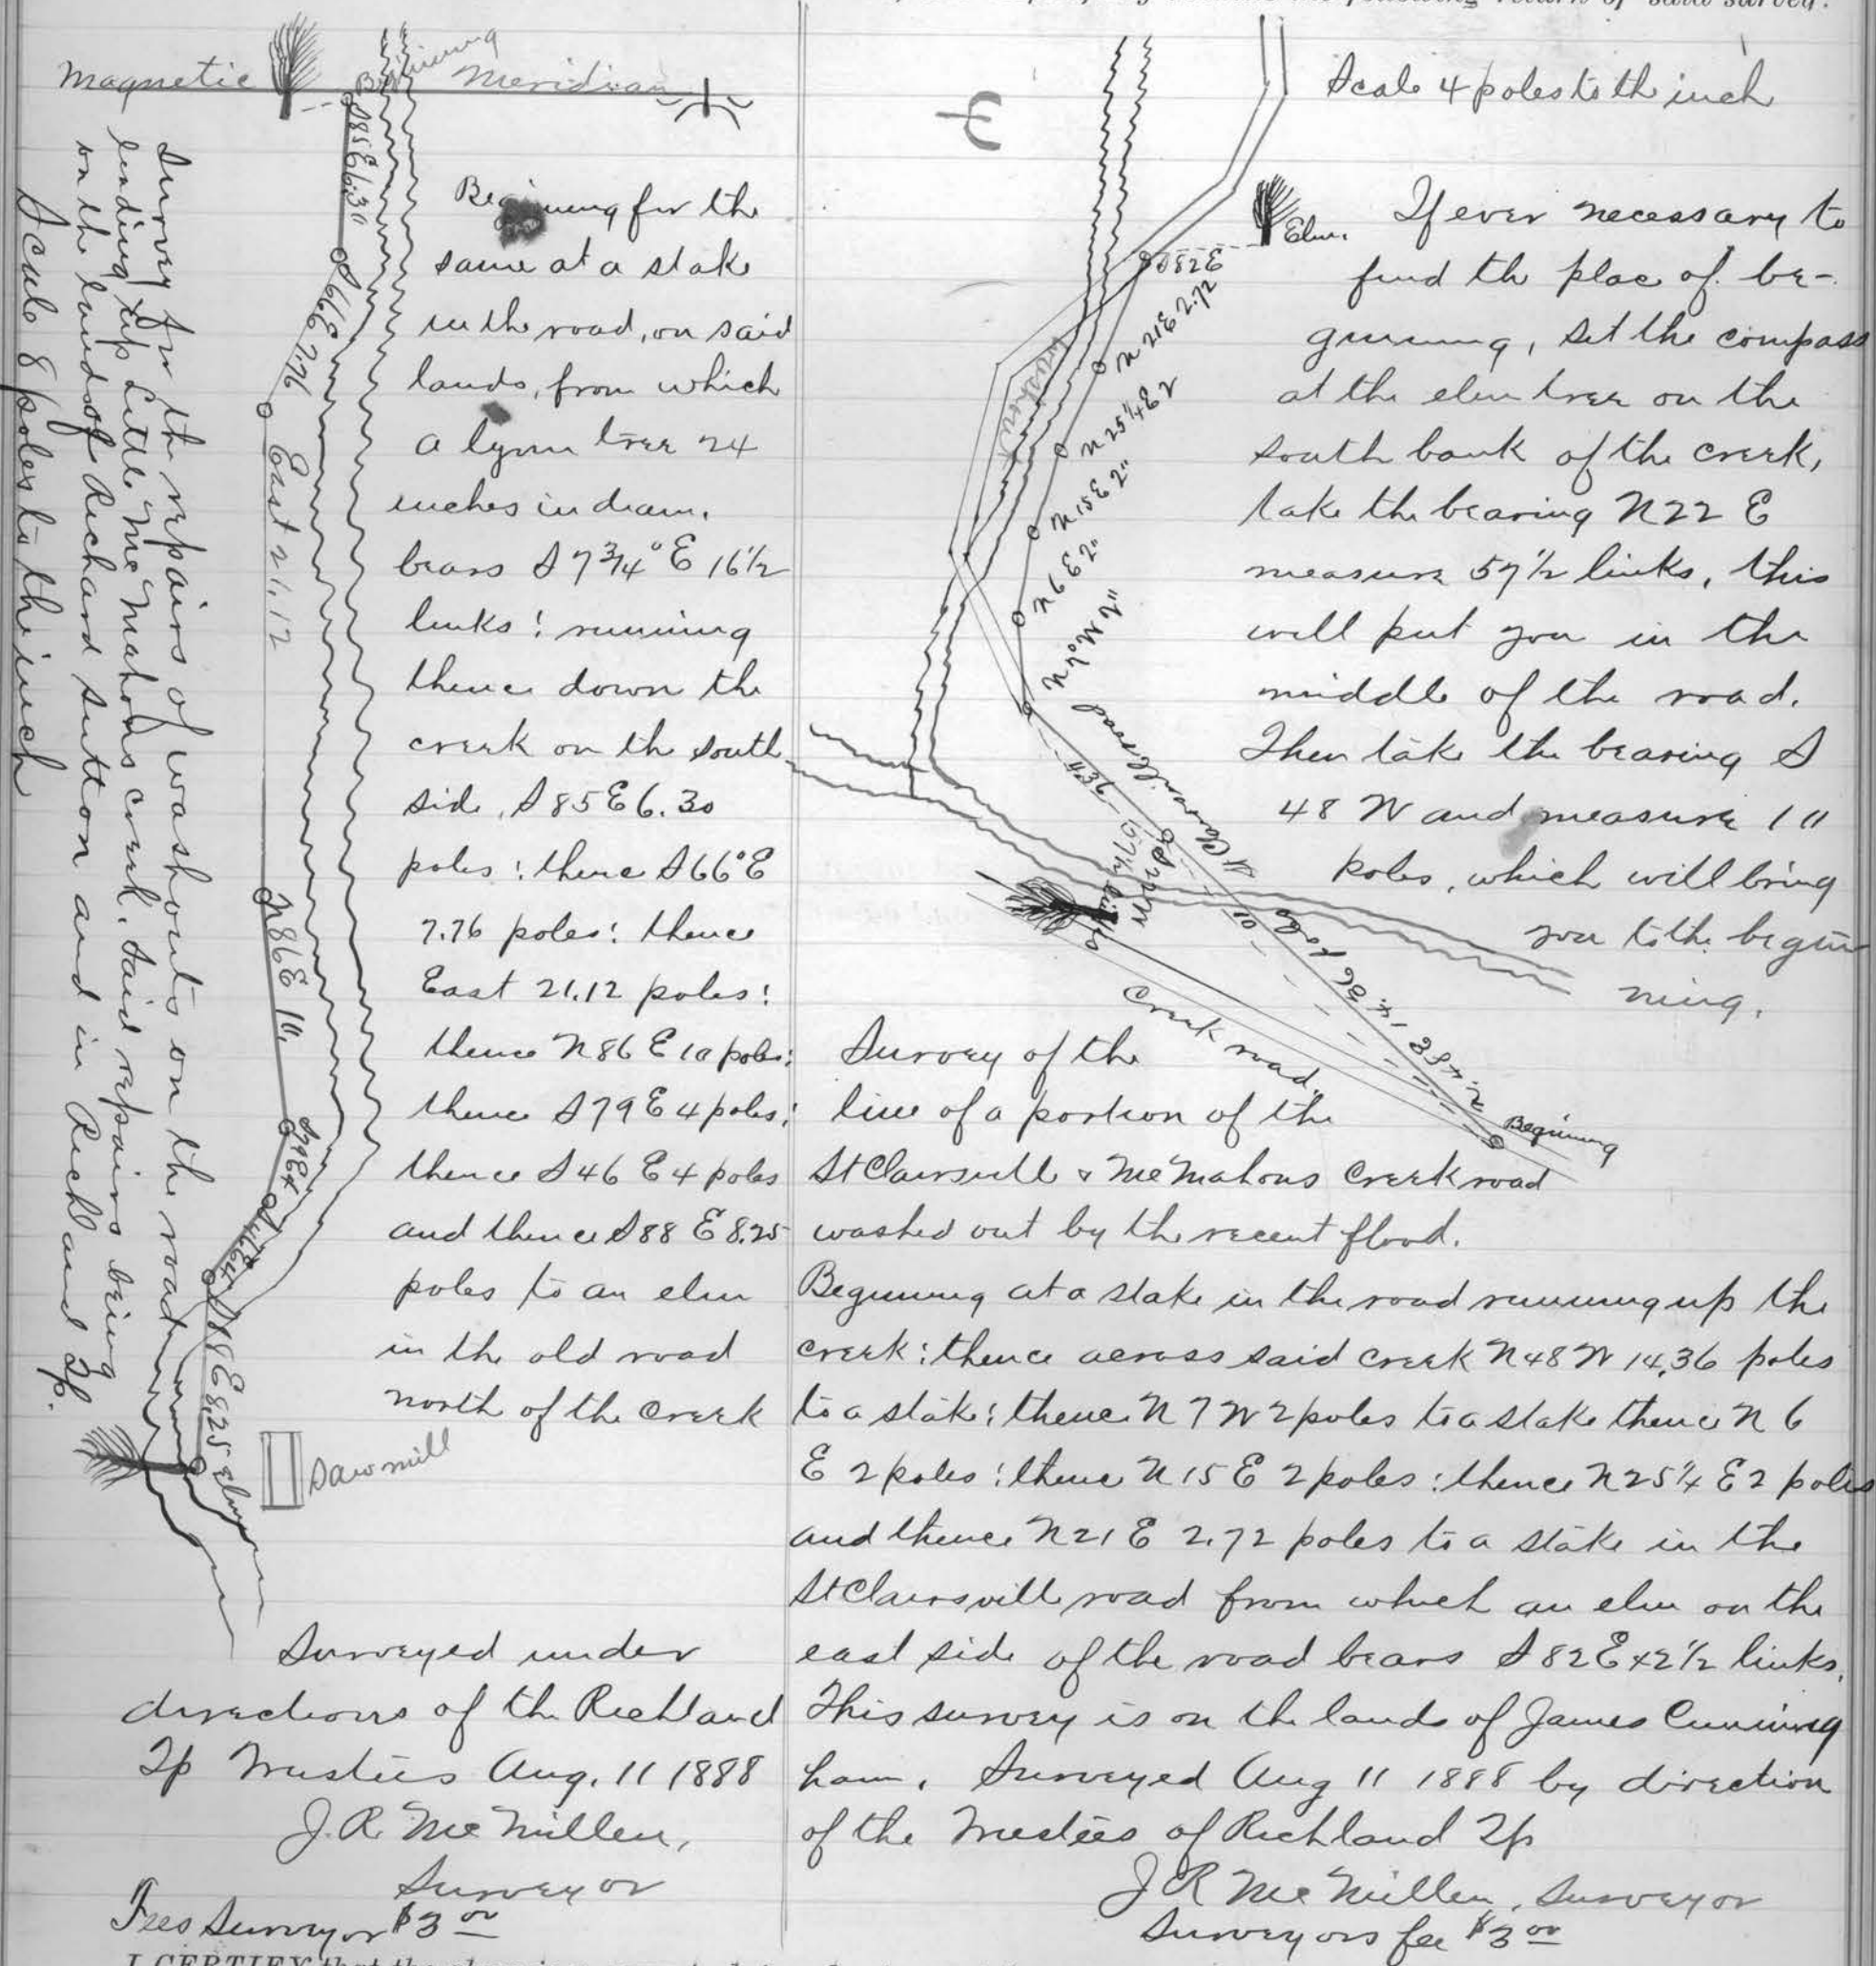 return of said survey.
Magnetic Meridian
Beginning
S85E 6.30
S66E 7.76
East 21.12
N86E 10.
S79E4
S46E4
S88E 8.25 Elm
Sawmill
Survey for the repairs of washouts on the road
leading up Little McMahons creek. Said repairs being
on the lands of Richard Sutton and in Richland Tp.
Scale 8 poles to the inch
Beginning for the
same at a stake
in the road, on said
lands, from which
a lynn tree 24
inches in diam.
bears S 7 3/4° E 16 1/2
links: running
thence down the
creek on the south
side, S 85 E 6.30
poles: thence S 66° E
7.76 poles: thence
East 21.12 poles:
thence N 86 E 10 poles:
thence S 79 E 4 poles:
thence S 46 E 4 poles
and thence S 88 E 8.25
poles to an elm
in the old road
north of the Creek
Surveyed under
directions of the Richland
Tp Trustees Aug. 11 1888
J. R. McMillen,
Surveyor
Fees Surveyor $3 00
Scale 4 poles to th inch
Elm.
S82E
N 21E 2.72
N 25 1/4 E 2
N 15 E 2"
N 6 E 2"
N 7° W 2"
washout
St Clairsvill road
N 48 W 14.36 Pols
Creek road
Beginning
If ever necessary to
find th plac of be-
ginning, set the compass
at the elm tree on the
south bank of the creek,
take the bearing N 22 E
measure 57 1/2 links, this
will put you in the
middle of the road.
Then take the bearing S
48 W and measure 10
poles, which will bring
you to the begin
ning.
Survey of the
line of a portion of the
St Clairsvill & McMahons Creek road
washed out by the recent flood.
Beginning at a stake in the road running up the
creek: thence across said creek N 48 W 14.36 poles
to a stake: thence N 7 W 2 poles to a stake thence N 6
E 2 poles: thence N 15 E 2 poles: thence N 25 1/4 E 2 poles
and thence N 21 E 2.72 poles to a stake in the
St Clairsvill road from which an elm on the
east side of the road bears S 82 E 42 1/2 links.
This survey is on the lands of James Cunning
ham. Surveyed Aug 11 1888 by direction
of the Trustees of Richland Tp
J R McMillen, Surveyor
Surveyors fee $3 00
I CERTIFY that the